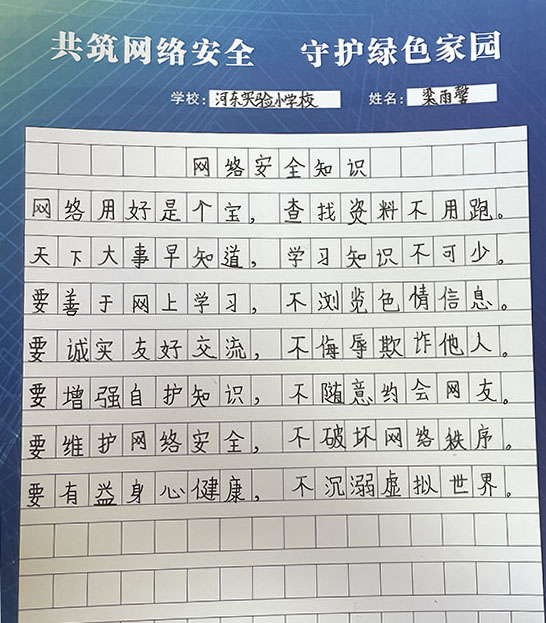 共筑网络安全 守护绿色家园
学校：河东实验小学校 姓名：梁雨馨
网络安全知识
网络用好是个宝，查找资料不用跑。
天下大事早知道，学习知识不可少。
要善于网上学习，不浏览色情信息。
要诚实友好交流，不侮辱欺诈他人。
要增强自护知识，不随意约会网友。
要维护网络安全，不破坏网络秩序。
要有益身心健康，不沉溺虚拟世界。